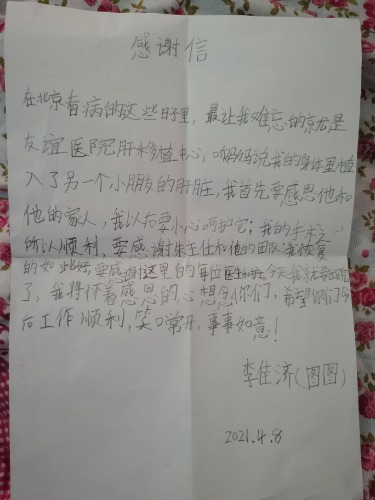 感谢信
在北京看病的这些日子里，最让我难忘的就是
友谊医院肝移植中心，听妈妈说我的身体里植
入了另一个小朋友的肝脏，我首先要感恩他和
他的家人，我以后要小心呵护它；我的手术之
所以顺利，要感谢朱主任和他的团队我恢复
的如此好要感谢这里的每位医生和护士今天我就要出院
了，我将怀着感恩的心想念你们，希望你们今
后工作顺利，笑口常开，事事如意！
李佳济（图图）
2021.4.8